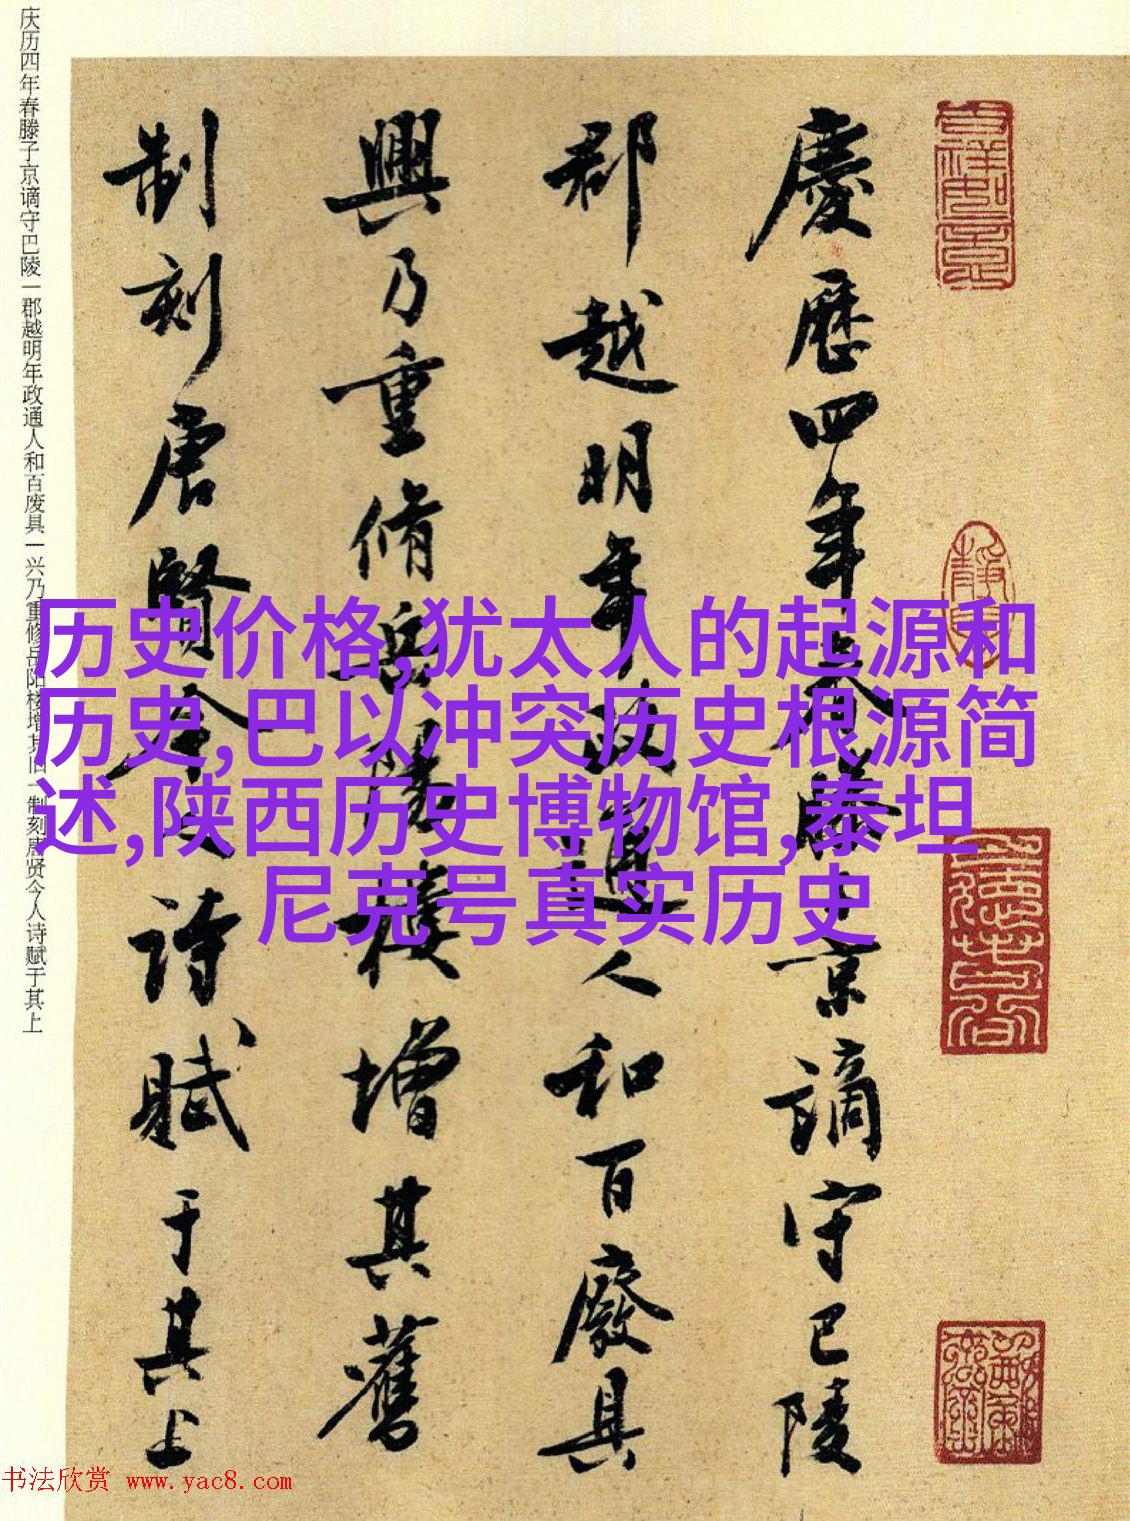 慶歷四年春滕子京謫守巴陵
郡越明年政通人和百廢具
興乃重脩岳陽樓增其舊
制刻唐賢今人詩賦于其上
庆历四年春滕子京谪守巴陵一郡越明年政通人和百废具一兴乃重修岳阳楼增其旧一制刻唐贤今人诗赋于其上
历史价格,犹太人的起源和
历史,巴以冲突历史根源简
述,陕西历史博物馆,泰坦
尼克号真实历史
书法欣赏 www.yac8.com